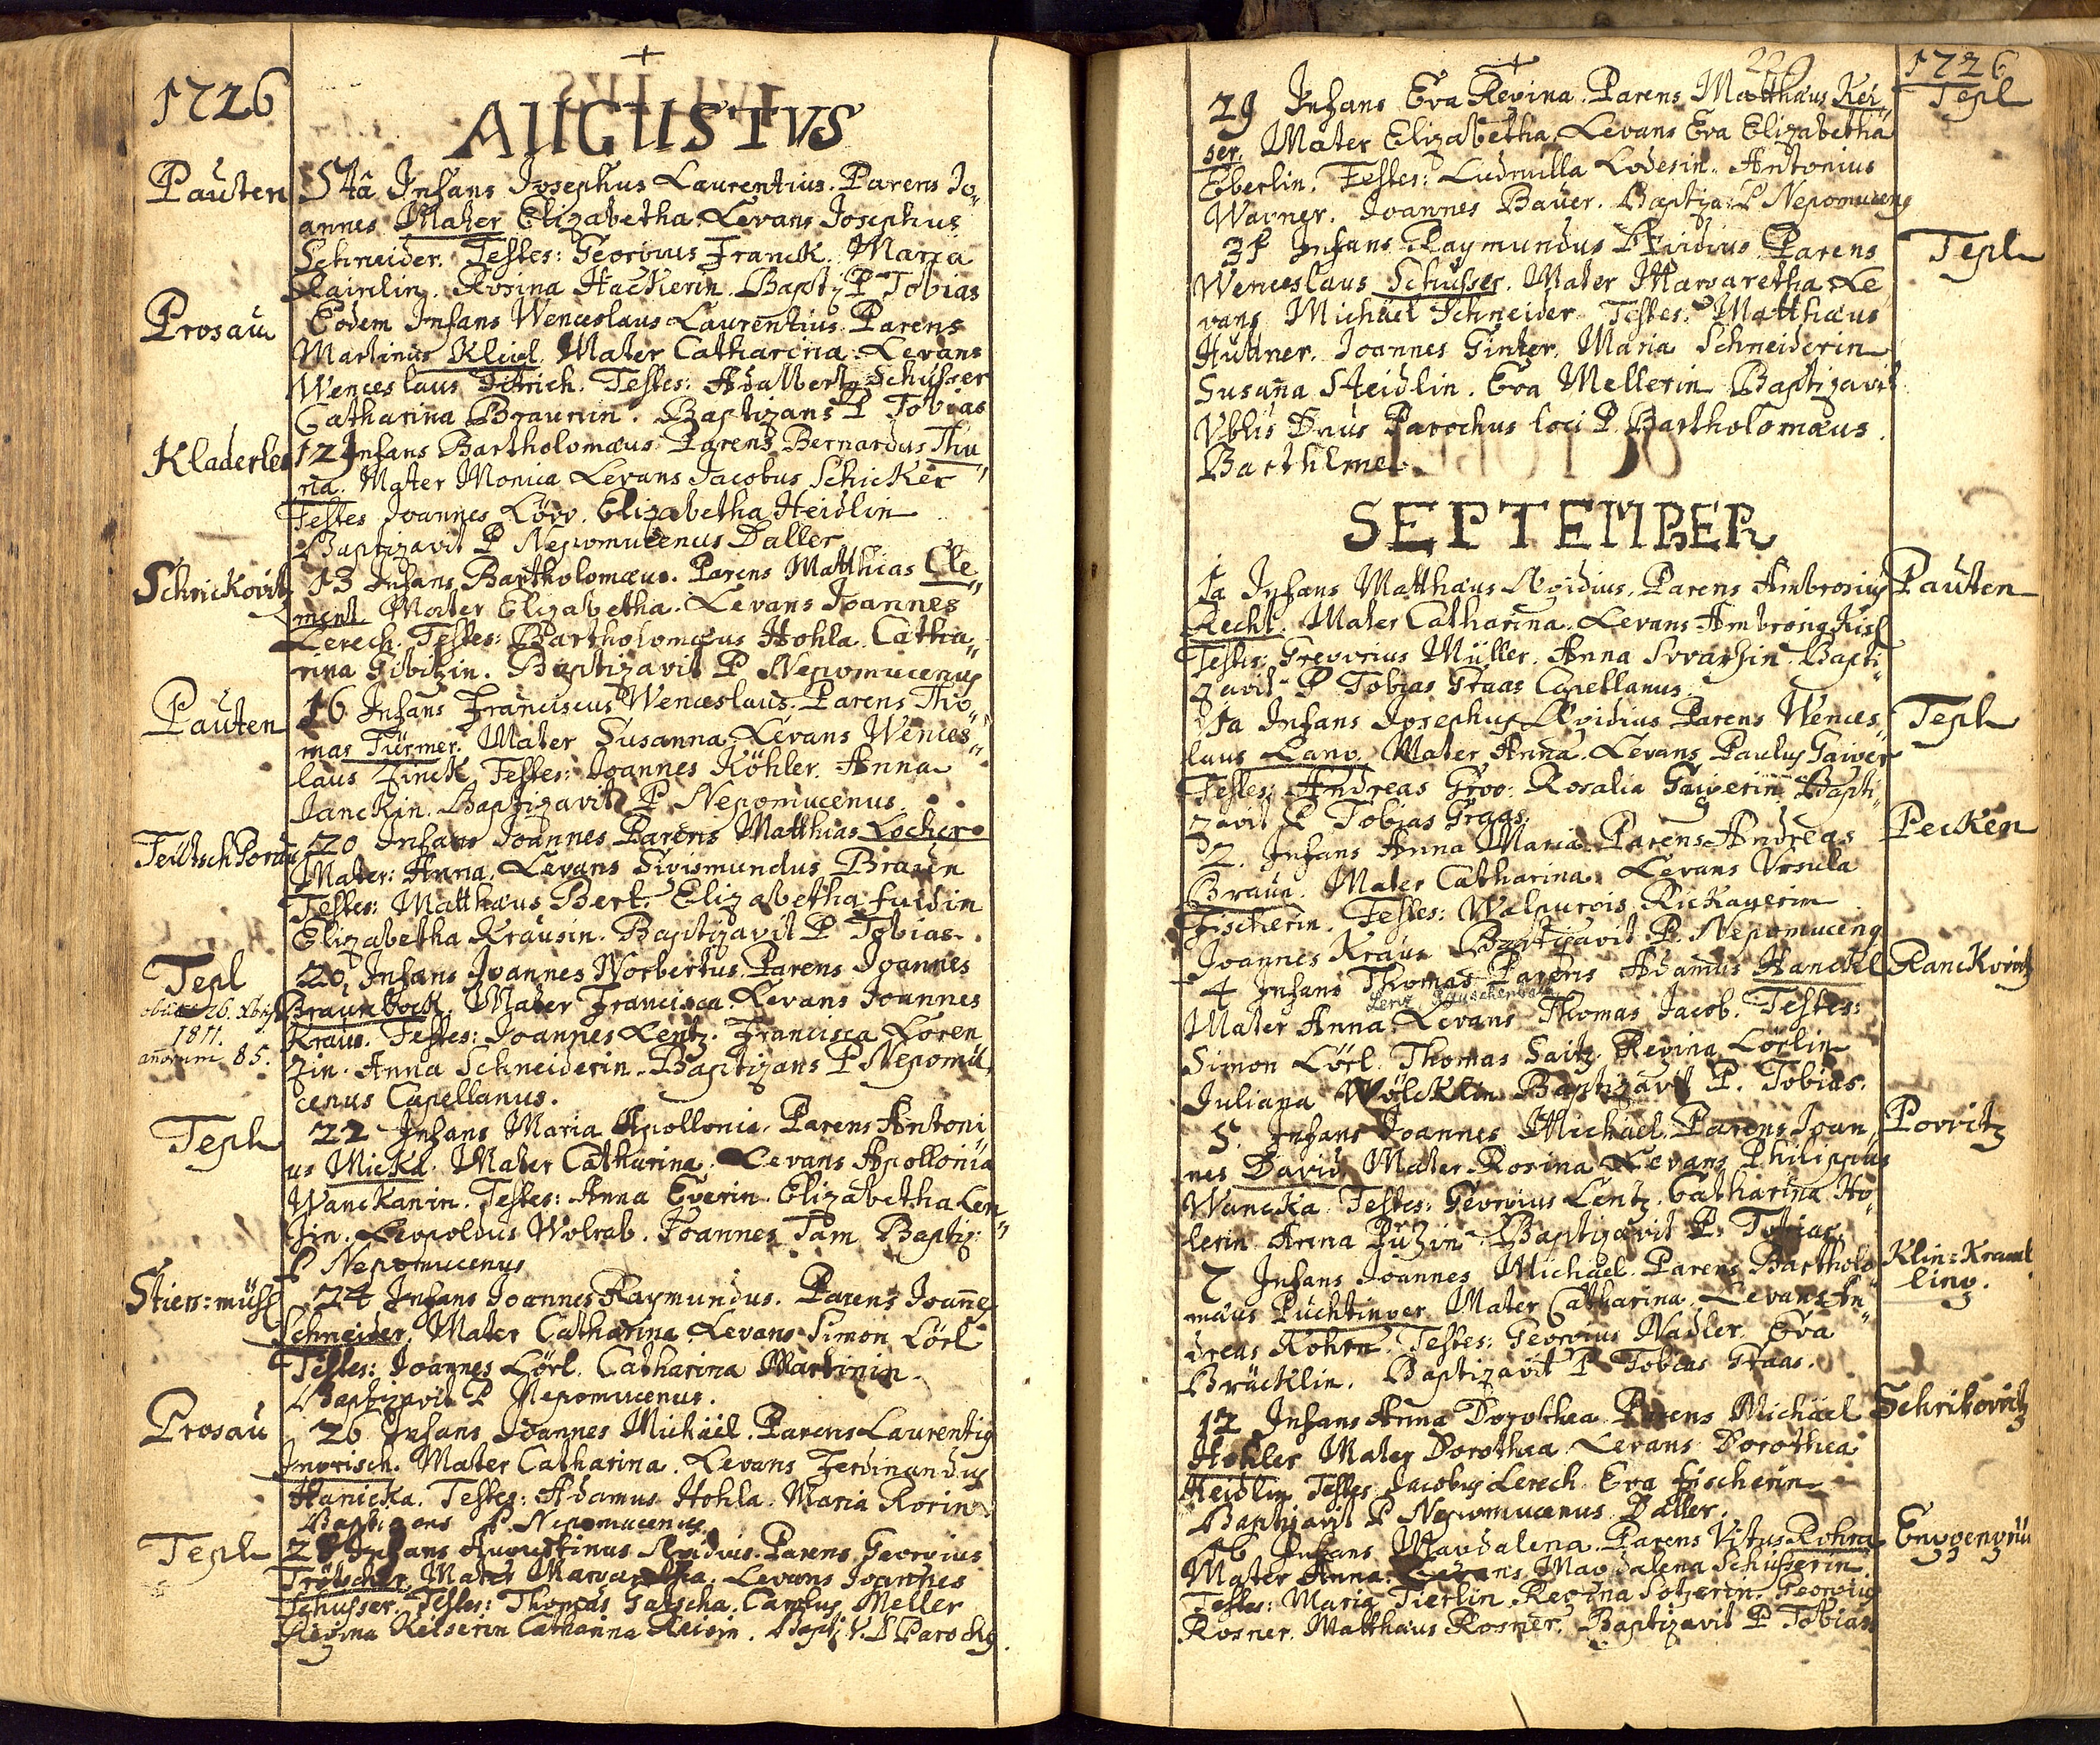 1726
AUGUSTVS
Pauten 5tâ Infans Josephus Laurentius. Parens Jo„
annes Mater Elizabetha. Levans Josephus
Schneider. Testes: Georgius Franck. Maria
Rosina Hackerin. Bapti: P Tobias
Prosau Eodem Infans Wenceslaus Laurentius. Parens
Martinus Kligl. Mater Catharina. Levans
Wenceslaus Ditrich. Testes: Adalbertg Schusser
Catharina Braunin. Baptizans P Tobias
Kladerles 12 Infans Bartholomæus. Parens Bernardus Thu„
ma. Mater Monica Levans Jacobus Schicker
Testes Joannes Löw. Elizabetha Heidlin
Baptizavit P Nepomucenus Daller
Schrickovitz 13 Infans Bartholomæus. Parens Matthias Cle„
ment Mater Elizabetha. Levans Joannes
Lerech. Testes: Bartholomæus Hohla. Catha„
rina Gibitzin. Baptizavit P Nepomucenus
Pauten 16 Infans Franciscus Wenceslaus. Parens Tho„
mas Türmer. Mater Susanna. Levans Wences„
laus Zinck. Testes: Joannes Köhler. Anna
Janckin. Baptizavit P Nepomucenus.
Teütsch Borau 20 Infans Joannes Parens Matthias Locker
Mater: Anna. Levans Sigismundus Braun
Testes: Matthæus Bert. Elizabetha fuidin
Elizabetha Krausin. Baptizavit P Tobias.
Tepl 20, Infans Joannes Norbertus. Parens Joannes
obiit 26. Xbris Braunbock. Mater Francisca. Levans Joannes
1811. Kraus. Testes: Joannes Lentz. Francisca Loren„
annorum 85. zin. Anna Schneiderin. Baptizans P Nepomu„
cenus Capellanus.
Tepl 22 Infans Maria Apollonia. Parens Antoni„
us Mickl. Mater Catharina. Levans Apollonia
Wanckanin. Testes: Anna Egerin. Elizabetha Len„
zin. Leopoldus Wolrab. Joannes Tam Baptiz:
P Nepomucenus
Stiers: müss 24 Infans Joannes Raymundus. Parens Joannes
Schneider. Mater Catharina Levans Simon Lörl
Testes: Joannes Lörl. Catharina Martinin.
Baptizavit P Nepomucenus.
Prosau 26 Infans Joannes Michäel. Parens Laurentig
Ingrisch. Mater Catharina. Levans Ferdinandus
Hanicka. Testes: Adamus Hohla. Maria Rorin
Baptizans P. Nepomucenus
Tepl 28 Infans Augustinus Ægidius. Parens Georgius
Trötscher. Mater Margaretha. Levans Joannes
Schusser. Testes: Thomas Gatscha. Carolus Meller
Regina Keiserin Catharina Reisin. Bapt: V. D Parochg.
229 1726
29 Infans Eva Regina. Parens Matthæus Kei„ Tepl
ser. Mater Elizabetha. Levans Eva Elizabetha
Eberlin. Testes: Ludmilla Lodesin. Antonius
Wagner. Joannes Bauer. Baptiza: P Nepomuceng
31 Infans Raymundus Ægidius Parens Tepl
Wenceslaus Schusser. Mater Margaretha Le„
vans Michäel Schneider Testes: Matthæus
Huttner. Joannes Ginter. Maria Schneiderin
Susanna Steidlin. Eva Mellerin Baptizavit
Vblis Dnus Parochus loci P. Bartholomæus.
Barthlme.
SEPTEMBER
1a Infans Matthæus Ægidius. Parens Ambrosius Pauten
Recht. Mater Catharina. Levans Ambrosig Kisl
Testes: Gregorius Müller. Anna Bapti„
zavit P Tobias Graas Capellanus.
1a Infans Josephus Ægidius Parens Wences„ Tepl
laus Lang. Mater Anna. Levans Paulus Gaiger
Testes: Andreas Grog. Rosalia Gaigerin Bapti„
zavit P Tobias Graas.
2. Infans Anna Maria. Parens Andreas Pecken
Braun. Mater Catharina. Levans Vrsula
Fischerin. Testes: Walpurgis Rickauerin
Joannes Kraus Baptizavit P. Nepomuceng
4 Infans Thomas Parens Adamus Hanckl Ranckovitz
Mater Anna. Levans Thomas Jacob. Testes:
Simon Lörl. Thomas Saitz. Regina Lörlin
Juliana Wölcklin Baptizavit P. Tobias.
5. Infans Joannes Michäel. Parens Joan„ Porritz
nes David. Mater Rosina Levans Philippus
Wancka. Testes: Georgius Lentz. Catharina Ho„
lerin Anna Putzin. Baptizavit P. Tobias.
7 Infans Joannes Michäel. Parens Bartholo„ Klin: Kraml
mæus Püchtinger. Mater Catharina. Levans An„ ling.
dreas Rohrn. Testes: Georgius Nadler. Eva
Brücklin. Baptizavit P Tobias Graas.
12 Infans Anna Dorothea. Parens Michäel Schrikovitz
Hohler Mater Dorothea. Levans Dorothea
Heidlin Testes Jacobus Lerech. Eva fischerin
Baptizavit P Nepomucenus Daller.
16 Infans Magdalena. Parens Vitus Rohra Enggengrü
Mater Anna. Levans. Magdalena Schusserin.
Testes: Maria Tierlin. Regina Georgius
Rosner. Matthæus Rosner. Baptizavit P Tobias